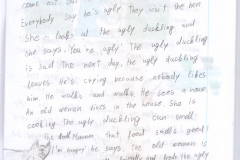 come out. 
Everybody say he's ugly. They isn't the hen.
She looks at the ugly duckling and
she says, You're ugly. The ugly duckling
is sad. The next day, he ugly duckling
leaves. He's crying because nobody likes
him. He walks and walks. He sees a house.
An old woman lives in the house. She is
cooking. The ugly duckling
that food smells good!
I'm hungry he says. The old woman is
and took the ugly